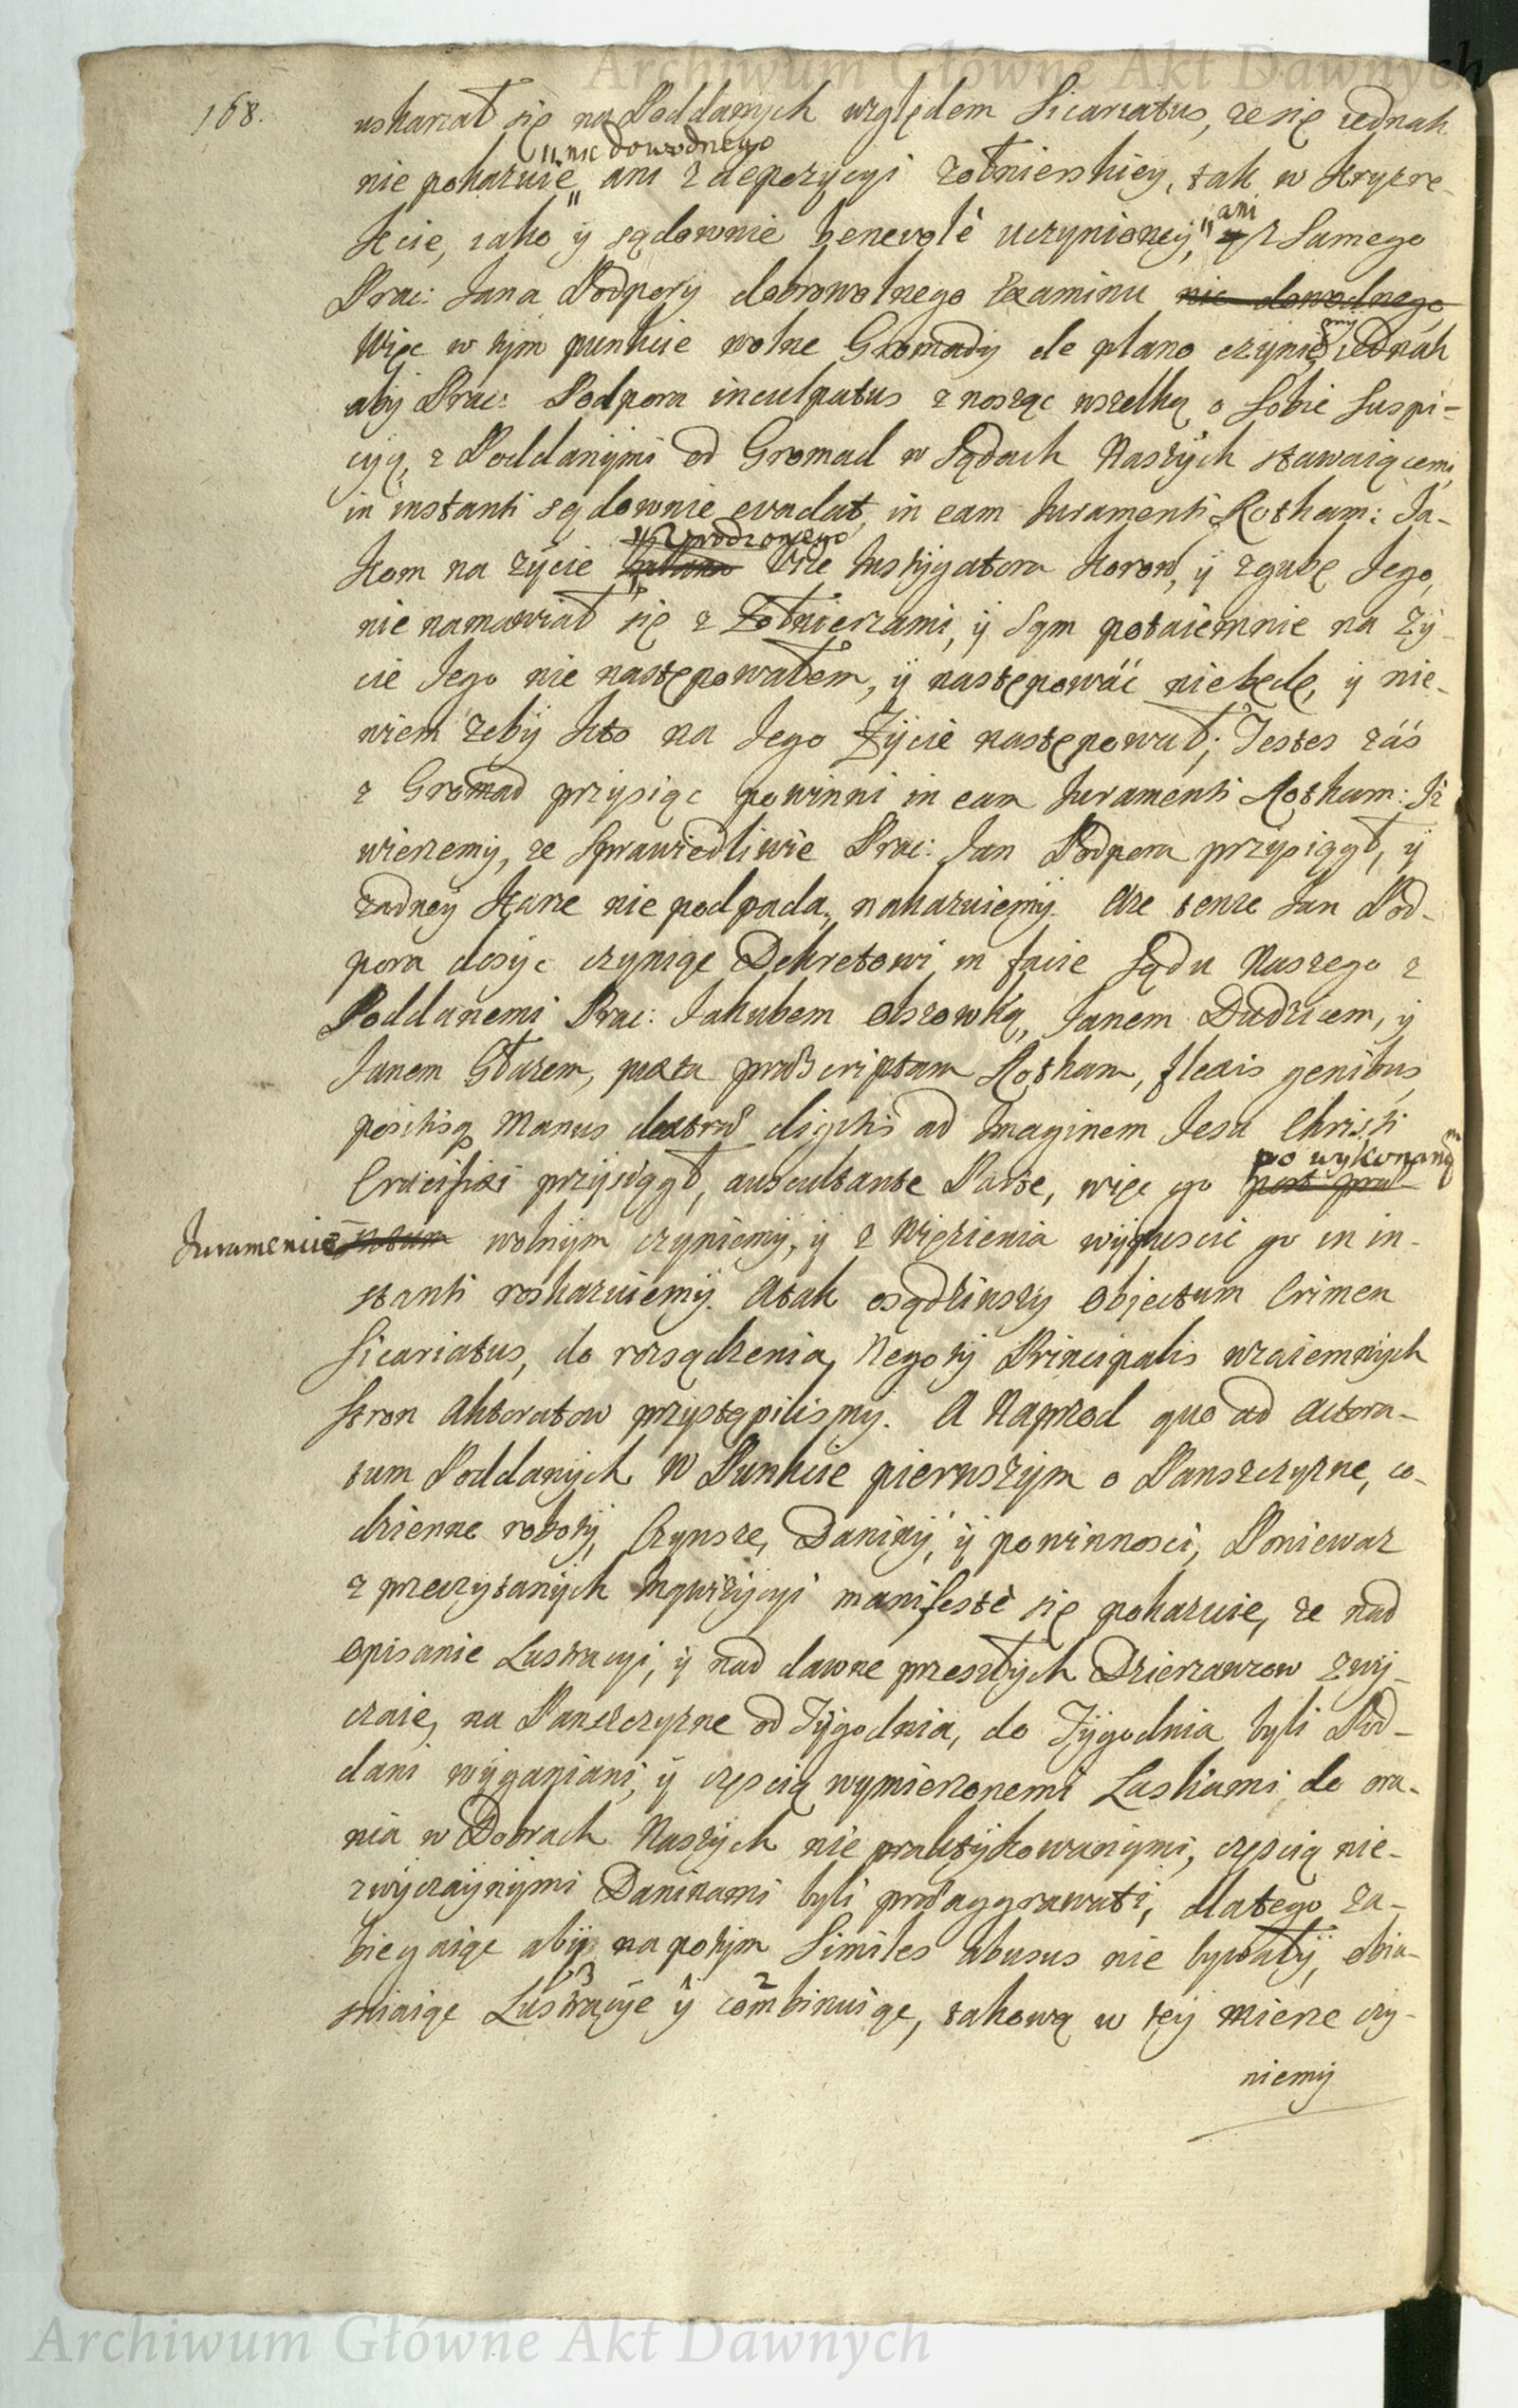 Archiwum Główne Akt Dawnych
168.
uskarzał się na Poddanych względem Sicariatus, ze się iednak
"nic dowodnego
nie pokazuie" ani z depozycyi żołnierskiey, tak w Krysre-
ani
kcie, iako ÿ sądownie benevolè uczynioney," ÿ z Samego
Prac: Jana Podpory dobrowolnego Examinu nic dowodnego
Więc w tÿm punkcie wolne Gromadÿ de plano czÿnię
mÿ, iednak
abÿ Prac: Podpora inculpatus znosząc wszelką o Sobie Suspi-
cyą, z Poddanÿmi od Gromad w Sądach Naszÿch stawaiącemi
in instanti sądownie evadat, in eam Juramenti Rotham: Ja-
"Urodzonego
kom na zÿcie Vice Instÿgatora Koron, ÿ zgubę Jego,
nie namawiał się z Zołnierzami, ÿ Sąm potaiemnie na Zÿ-
cie Jego nie następowałem, ÿ następowáć niebędę, ÿ nie-
wiem zebÿ kto na Jego Zÿcie następował; Testes zás
z Gromad przÿsiąc powinni in eam Juramenti Rotham: Jż
wierzemÿ, ze Sprawiedliwie Prac: Jan Podpora przÿsiągł, ÿ
zadneÿ karze nie podpada, nakazuiemÿ. Aże tenze Jan Pod-
pora dosÿc czÿniąc Dekretowi in facie Sądu Naszego z
Poddanemi Prac: Jakubem Olszowką, Janem Dudzicem, ÿ
Janem Głazem, juxta præscriptam Rotham, flexis genibus,
positisq Manus dextræ digitis ad Imaginem Jesu Christi
Crucifixi przÿsiągł, auscultante Parte, więc go post præ-
po wykonanym
Juramencie wolnÿm czÿniemÿ, ÿ z Więzienia wÿpuscić go in in-
stanti roskazuiemÿ. Atak osądziwszy objectum Crimen
Sicariatus, do rozsądzenia, Negotÿ Principalis wzaiemnÿch
stron Aktoratow przÿstąpilismy. A Naprzod quo ad Actora-
tum Poddanÿch W Punkcie pierwszÿm o Panszczyznę, co-
dzienne robotÿ, Czynsze, Daninÿ, ÿ powinnosci, Poniewaz
z przeczytanÿch Inqwizÿcyi manifestè się pokazuie, ze nad
opisanie Lustracyi, ÿ nad dawne przeszłÿch Dzierzawcow zwÿ-
czaie, na Panszczyznę od Tÿgodnia, do Tÿgodnia byli Pod-
dani wÿganiani, ÿ częscią wymierzonemi Laskami do ora-
nia w Dobrach Naszÿch nie praktÿkowanymi, częscią nie-
zwÿczaynÿmi Daninami byli præaggrawati, dlatego za-
biegaiąc abÿ na potÿm Similes abusus nie bÿwałÿ, obia-
3 1 2
sniaiąc Lustracÿę ÿ combinuiąc, takową w teÿ mierze czy-
niemÿ
Archiwum Główne Akt Dawnych